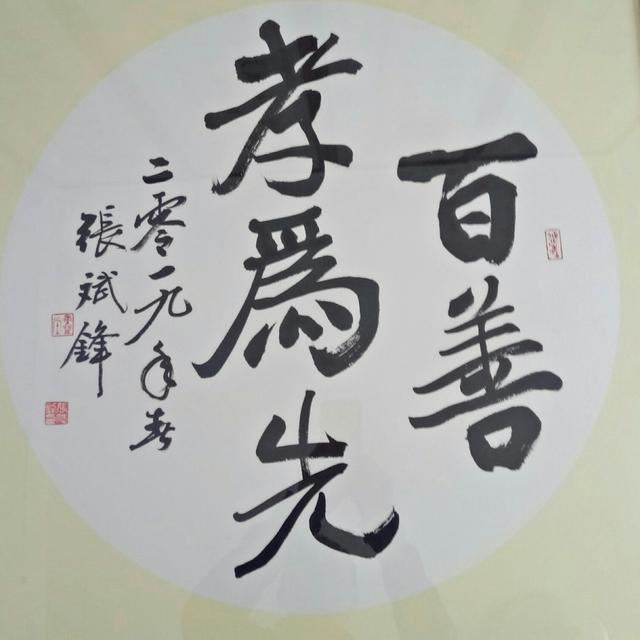 百善
孝為先
二零一九年春
張斌鋒